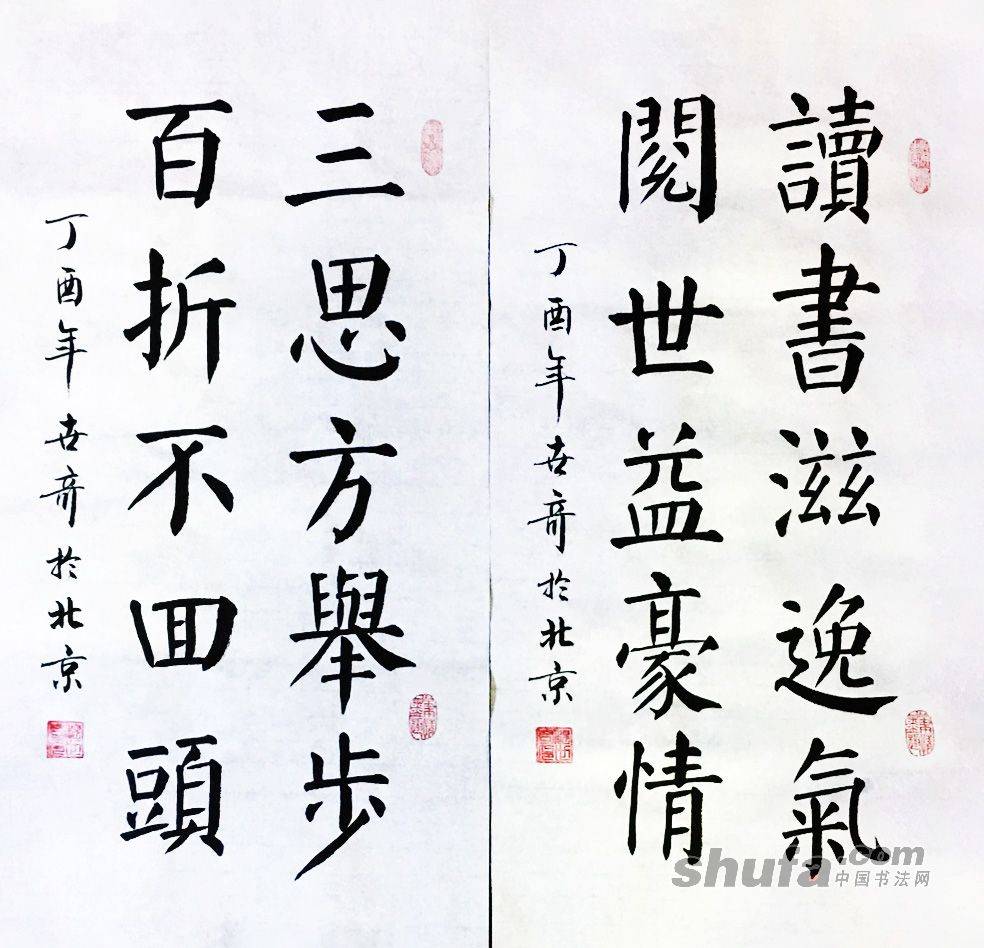 讀書滋逸氣
閱世益豪情
丁酉年世奇於北京
三思方舉步
百折不回頭
丁酉年世奇於北京
shufa.com
中国书法网